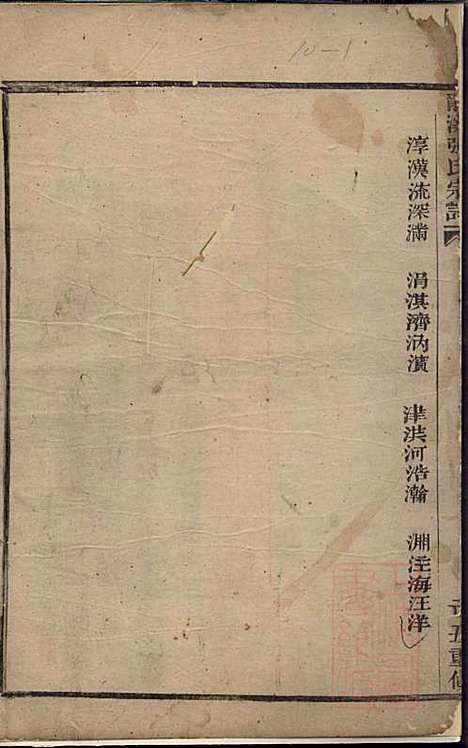 淳漢流深滿　涓淇濟汭濱　津洪河浩瀚　淵注海汪洋
張氏宗譜
重修
10-1